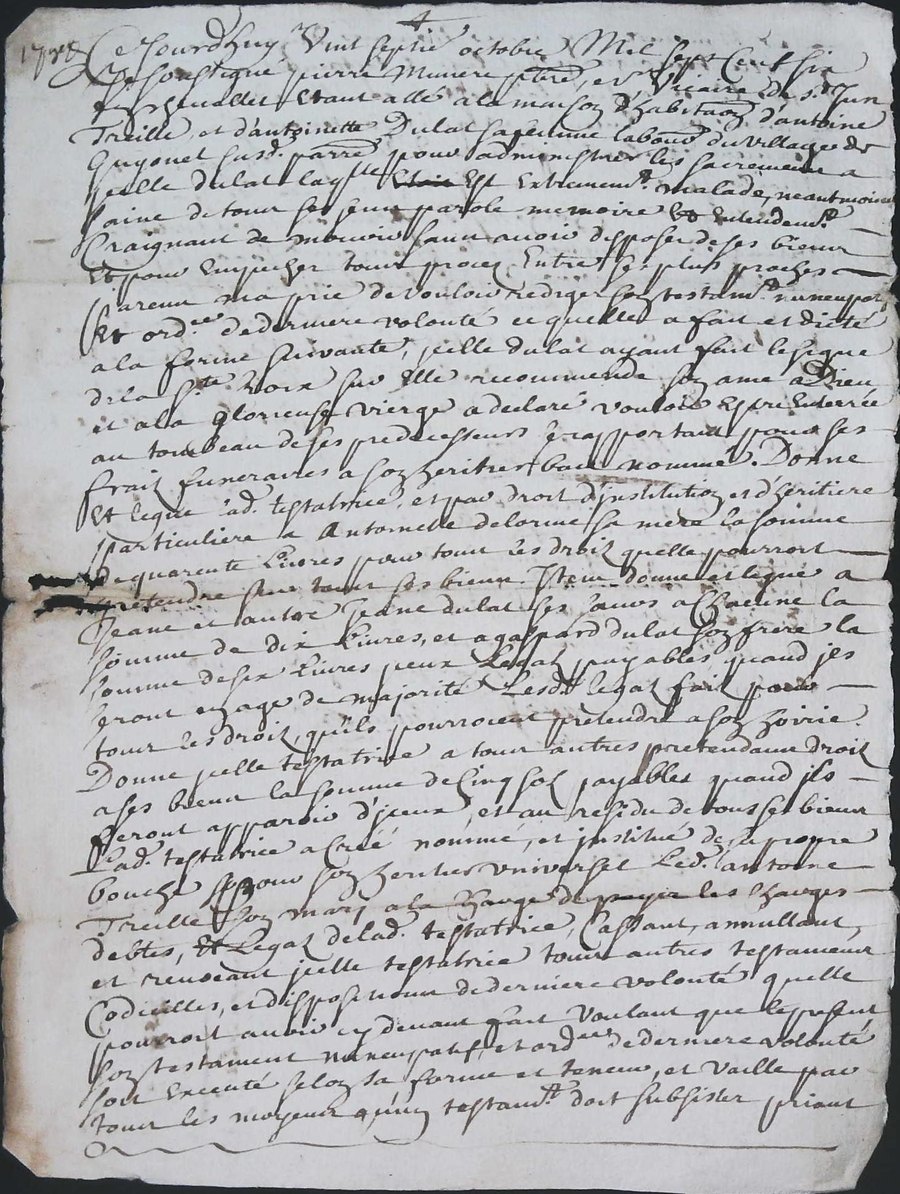 Ce Jourdhuy Vint septie octobre Mil sept Cent six
Je soussigné pierre Munere ptre, et Vicaire de st Jun
en Chevallet Etant allé a la maison d'habitaon d'antoine
Treille, et d'antoinette Dulat sa femme labour du village de
Guyonet susd. parre pour administrer les sacremens a
jcelle dulat laqlle Est Extremement malade, neantmoins
saine de tous ses sens parole memoire Et Entendemt
Craignant de mourir sans avoir disposer de ses biens
Et pour Empecher tous procez Entre ses plus proches
parens ma prie de vouloir rediger son testamt nuncupat
Et ordce de derniere volonté ce quelle a fait et dicté
a la forme suivante, jcelle dulat ayant fait le signe
de la Ste Croix sur Elle recommende son ame a Dieu
et a la glorieuse vierge a declaré vouloir Estre Enterrée
au tombeau de ses predecesseurs rapportant pour ses
fraix funeraires a son heritier bas nommé. Donne
Et legue lad. testatrice, et par droit d'jnstitution et d'heritiere
particuliere a Antoinette delorme sa mere la somme
de quarente Livres pour tous les droix quelle pourroit
pretendre sur tous ses biens. Jtem donne et legue a
Jeane et autre Jeane dulat ses sœurs a Chacune la
somme de dix Livres, et a gaspard dulat son frere la
somme de six Livres jceux Legaz payables quand jls
seront en age de majorité Lesd. legaz fait pour
tous les droix, qu'ils pourroient pretendre a son hoirie.
Donne jcelle testatrice a tous autres pretendans droix
a ses biens la somme de Cinq solz payables quand jls
seront apparoir d'jceux, et au residu de tous ses biens
Lad. testatrice a Créé nommé, et jnstitué de sa propre
bouche pour son heritier universel Led. antoine
Treille son mary a la Charge de payer les Charges
debtes, Et Legaz de lad. testatrice, Cassant, annullant,
et revocant jcelle testatrice tous autres testamens
Codicilles, et dispositions de derniere volonté quelle
pourroit avoir cy devant fait Voulant que le present
son testament nuncupatif, et ordce de derniere volonté
soit Executé selon sa forme et teneur, et Vaille par
tous les moyens qu'un testamt doit subsister priant